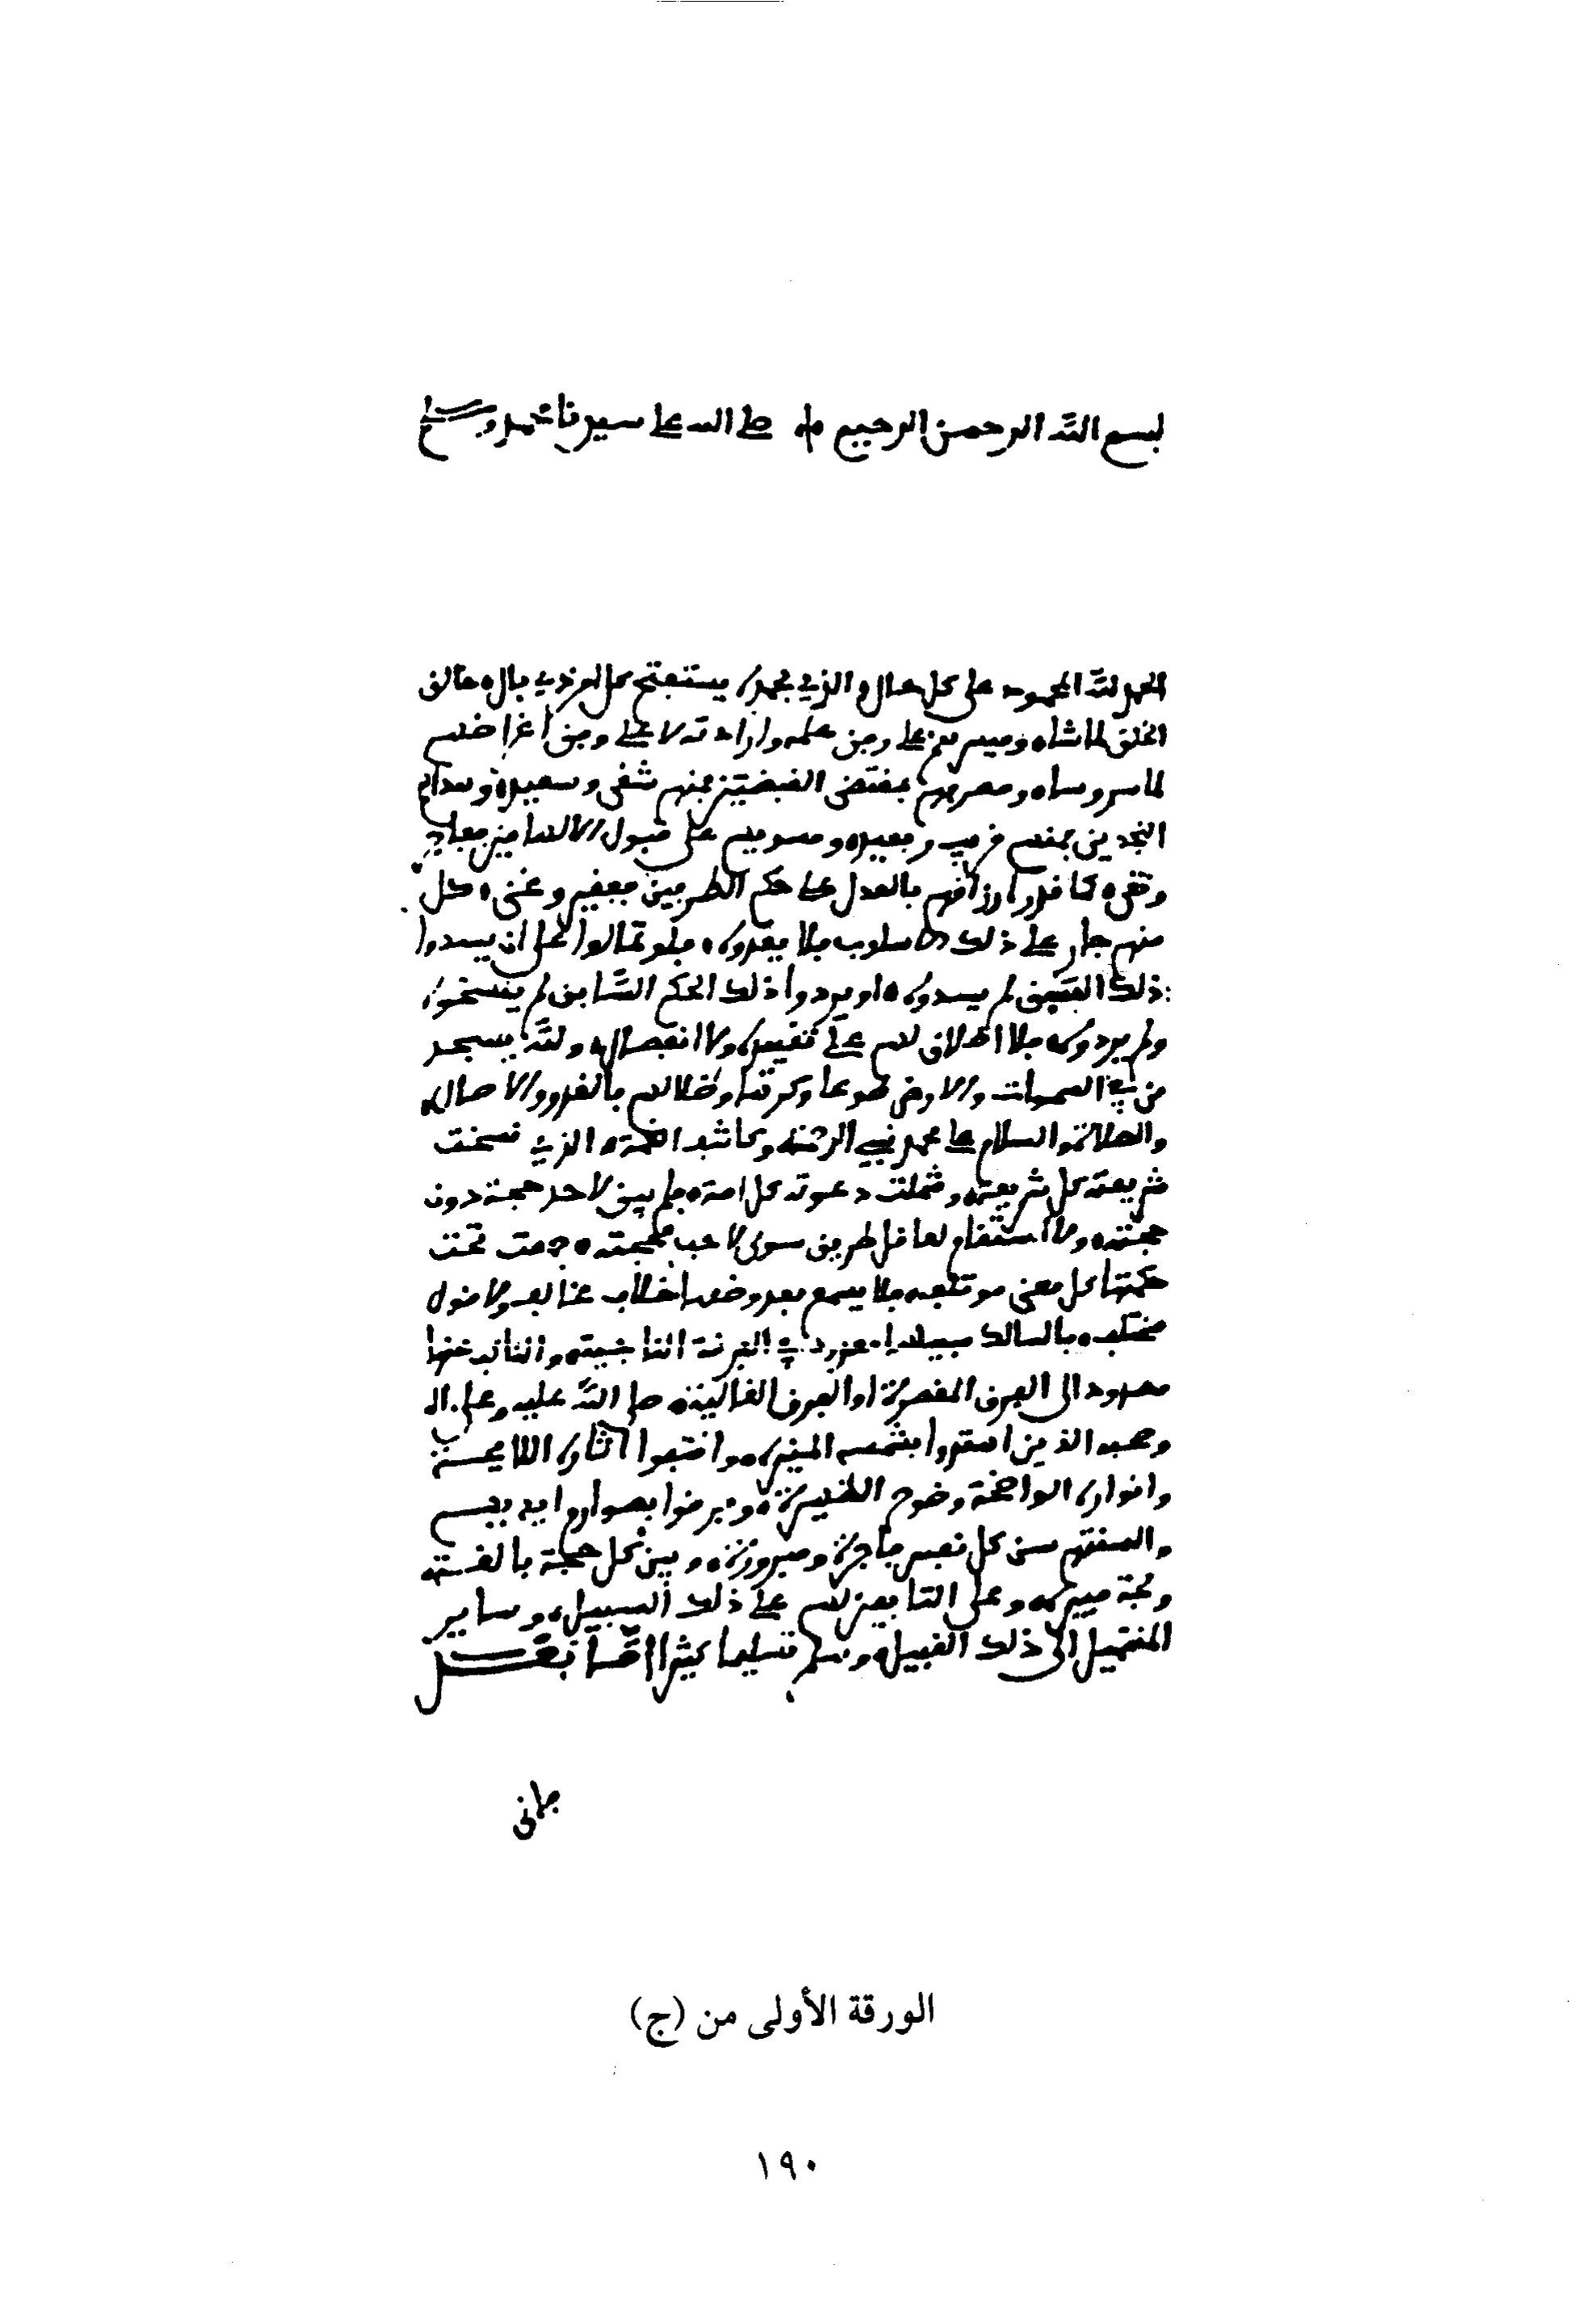 بسم الله الرحمن الرحيم صلى الله على سيدنا محمد وسلم
الحمد لله المحمود على كل حال والذي بحمده يستفتح كل امر ذي بال خالق
الخلق لما شاء وميسرهم على وفق علمه وارادته لا على وفق أغراضهم
لما سر وساء ومصرفهم بمقتضى القبضتين فمنهم شقي وسعيد وهداهم
النجدين فمنهم قريب وبعيد ومسويهم على قبول الالهامين ففاجر
وتقي كما قدر ارزاقهم بالعدل على حكم الطرفين ففقير وغني كل
منهم جار على ذلك الاسلوب فلا يعدوه فلو تمالوا على ان يسدوا
ذلك الفتق لم يسدوه او يردوا ذلك الحكم السابق لم ينسخوه
ولم يردوه فلا اطلاق لهم على تقييده ولا انفصال ولله يسجد
من في السموات والارض طوعا وكرها وظلالهم بالغدو والاصال
والصلاة والسلام على محمد نبي الرحمة وكاشف الغمة الذي نسخت
شريعته كل شريعة وشملت دعوته كل امة فلم يبق لاحد حجة دون
حجته ولا استقام لعاقل طريق سوى لاحب محجته وجمعت تحت
حكمتها كل معنى مؤتلف فلا يسمع بعد وضعها خلاف مخالف ولا قول
مختلف فالسالك سبيلها معدود في الفرقة الناجية والناكب عنها
مصدود الى الفرق المقصرة او الفرق الغالية صلى الله عليه وعلى اله
وصحبه الذين اهتدوا بشمسه المنيرة واقتفوا آثاره اللايحة
وانواره الواضحة وضوح الظهيرة وفرقوا بصوارم ايديهم
والسنتهم بين كل نفس فاجرة ومبرورة وبين كل حجة بالغة
وحجة مبيرة وعلى التابعين لهم على ذلك السبيل وساير
المنتمين الى ذلك القبيل وسلم تسليما كثيرا اما بعد
فاني
الورقة الأولى من (ج)
١٩٠